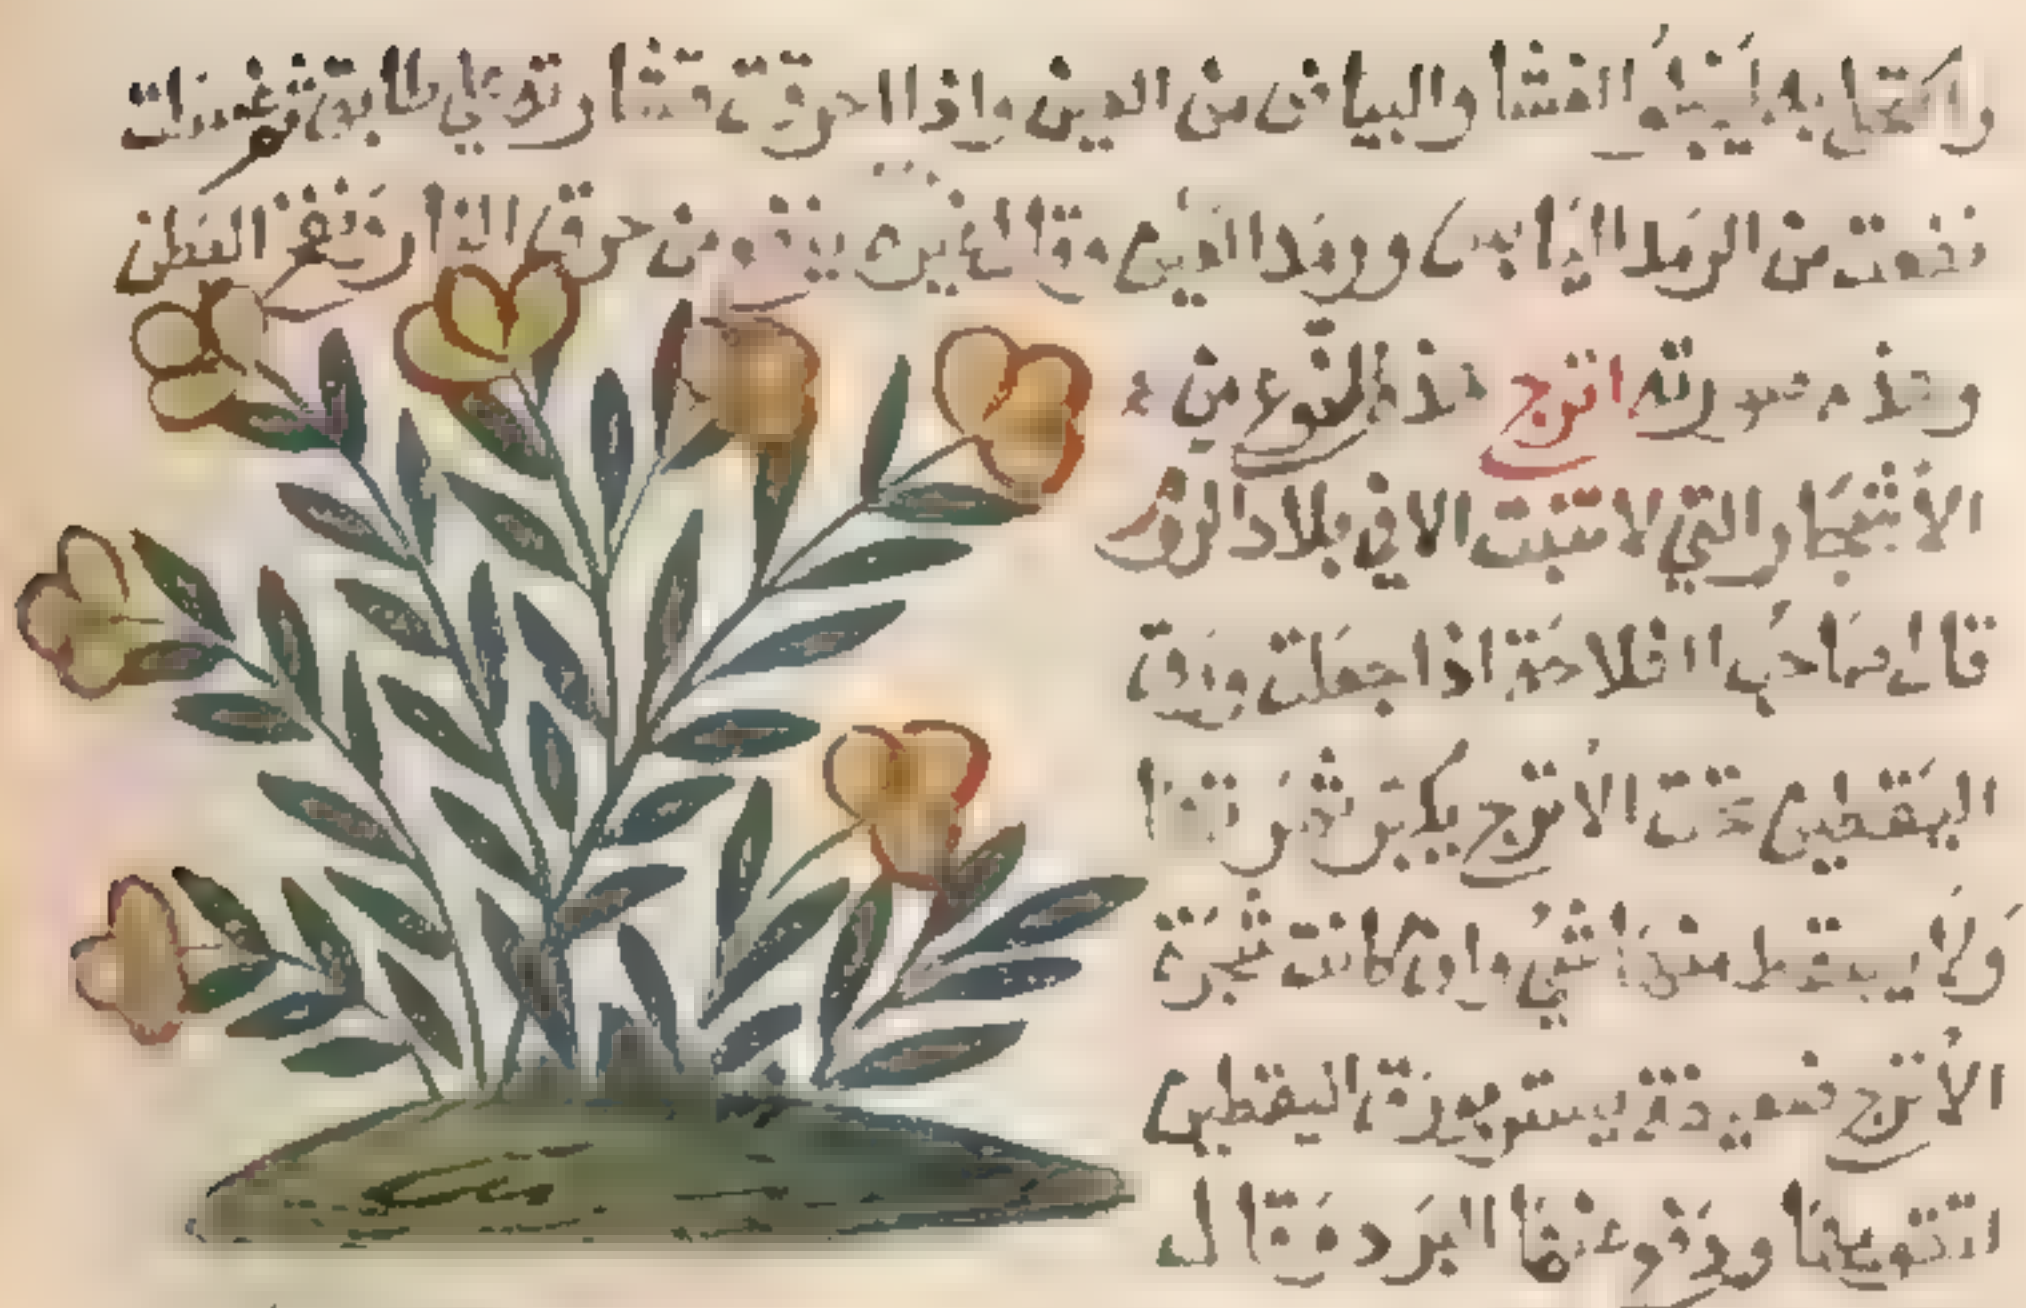 واكتحل به الغشا والبياض من العين واذا احرقت قشا رته على طابق ثم غسلت
نفعت من الرمد اليابس وورمد العين وقال غيره ينفع من حرق النار ونفع القطن
وهذه صورته اترج هذا النوع من
الأشجار التي لا تنبت الا في بلاد الروم
قال صاحب الفلاحة اذا جعلت ورق
اليقطين تحت الأترج يكبر ثمرتها
ولا يسقط منها شي وان كانت شجرة
الأترج ضعيفة يستر بورق اليقطين
لتقويها ودفع عنها البرد وقال